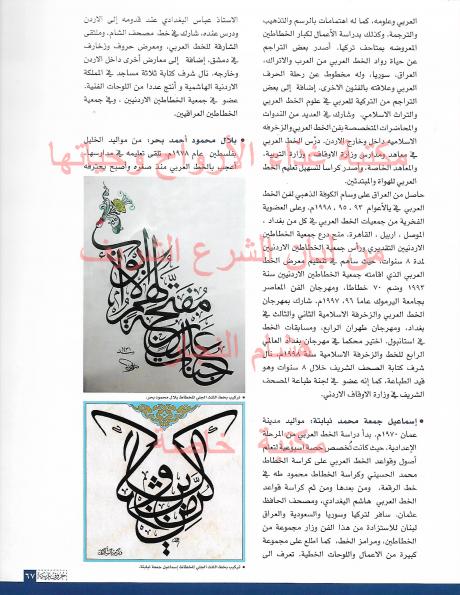 العربي وعلومه، كما له اهتمامات بالرسم والتذهيب
والترجمة، وكذلك بدراسة الأعمال لكبار الخطاطين
المعروضه بمتاحف تركيا. أصدر بعض التراجم
عن حياة رواد الخط العربي من العرب والاتراك،
العراق، سوريا، وله مخطوط عن رحلة الحرف
العربي وعلاقته بالفنون الاخرى. إضافة إلى بعض
التراجم من التركية للعربي في علوم الخط العربي
والتراث الاسلامي. وشارك في العديد من الندوات
والمحاضرات المتخصصة بفن الخط العربي والزخرفه
الاسلاميه داخل وخارج الاردن. درّس الخط العربي
في معاهد ومدارس وزارة الاوقاف، وزارة التربية،
والمعاهد الخاصة، وأصدر كراساً لتسهيل تعليم الخط
العربي للهواة والمبتدئين.
حاصل من العراق على وسام الكوفة الذهبي لفن الخط
العربي في بالأعوام ٩٣، ٩٥، ١٩٩٨م، وعلى العضوية
الفخرية من جمعيات الخط العربي في كل من بغداد،
الموصل، اربيل، القاهرة، منح درع جمعية الخطاطين
الاردنيين التقديري ورأس جمعية الخطاطين الاردنيين
لمدة ٨ سنوات، حيث ساهم في تنظيم معرض الخط
العربي الذي اقامته جمعية الخطاطين الاردنيين سنة
١٩٩٣ وضم ٧٠ خطاطا، ومهرجان الفن المعاصر
بجامعة اليرموك عام ٩٦، ١٩٩٧م. شارك بمهرجان
الخط العربي والزخرفة الاسلامية الثاني والثالث في
بغداد، ومهرجان طهران الرابع، ومسابقات الخط
في استانبول. اختير محكما في مهرجان بغداد العالمي
الرابع للخط والزخرفة الاسلامية سنة ١٩٩٨م. نال
شرف كتابة الصحف الشريف خلال ٨ سنوات وهو
قيد الطباعة، كما إنه عضو في لجنة طباعة المصحف
الشريف في وزارة الاوقاف الاردني.
• إسماعيل جمعة محمد نبابتة: مواليد مدينة
عمان ١٩٧٠م. بدأ دراسة الخط العربي من المرحلة
الإعدادية، حيث كانت تُخصص حصة أسبوعية لتعلم
أصول وقواعد الخط العربي على كراسة الخطاط
محمد الحسيني وكراسة الخطاط محمود طه في
خط الرقعة، ومن بعدها ومن ثم كراسة قواعد
الخط العربي هاشم البغدادي، ومصحف الحافظ
عثمان. سافر لتركيا وسوريا والسعودية والعراق
لبنان للاستزادة من هذا الفن وزار مجموعة من
الخطاطين، ومرامز الخط، كما اطلع على مجموعة
كبيرة من الاعمال واللوحات الخطية. تعرف الى
الاستاذ عباس البغدادي عند قدومه إلى الاردن
ودرس عنده، شارك في خط مصحف الشام، وملتقى
الشارقة للخط العربي، ومعرض حروف وزخارف
في دمشق، إضافة إلى معارض أخرى داخل الاردن
وخارجه. نال شرف كتابة ثلاثة مساجد في المملكة
الاردنية الهاشمية و أنتج عددا من اللوحات الفنية.
عضو في جمعية الخطاطين الاردنيين، وفي جمعية
الخطاطين العراقيين.
• بلال محمود أحمد بحر: من مواليد الخليل
بفلسطين عام ١٩٧٨م. تلقى تعليمه في مدارسها.
أعجب بالخط العربي منذ صغره وأصبح يحترفه
• تركيب بخط الثلث الجلي للخطاط بلال محمود بحر.
• تركيب بخط الثلث الجلي للخطاط إسماعيل جمعة نبابتة.
الشرع الشريف
هشام
مكتبة خاصة
حروف عربية
٦٧